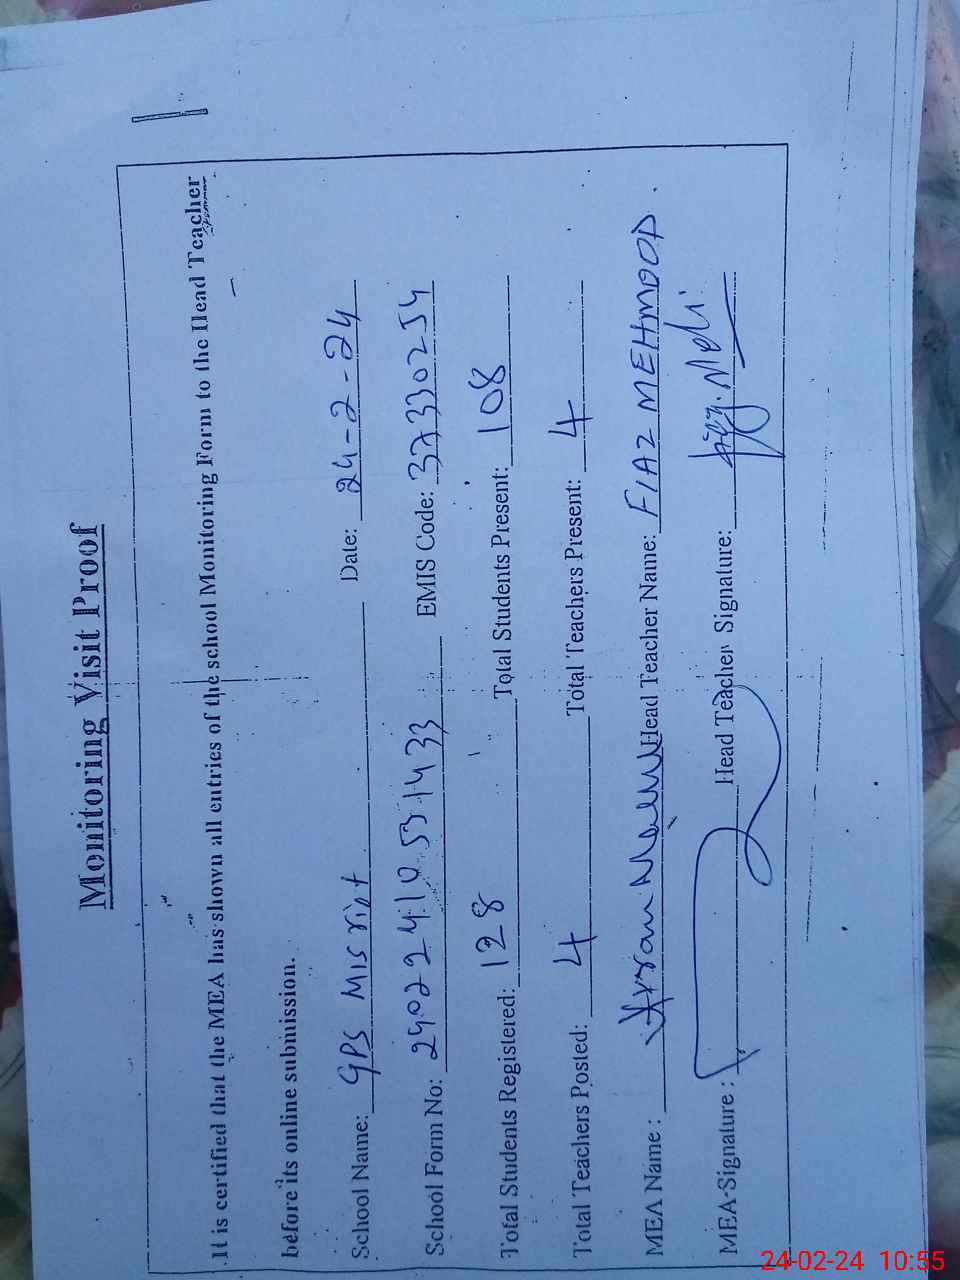 Monitoring Visit Proof
It is certified that the MEA has shown all entries of the school Monitoring Form to the Head Teacher
before its online submission.
School Name: GPS MIS riot Date: 24-2-24
School Form No: 24022410531433 EMIS Code: 37330254
Total Students Registered: 128 Total Students Present: 108
Total Teachers Posted: 4 Total Teachers Present: 4
MEA Name : Head Teacher Name: FIAZ MEHMOOD.
MEA Signature : Head Teacher Signature:
24-02-24 10:55